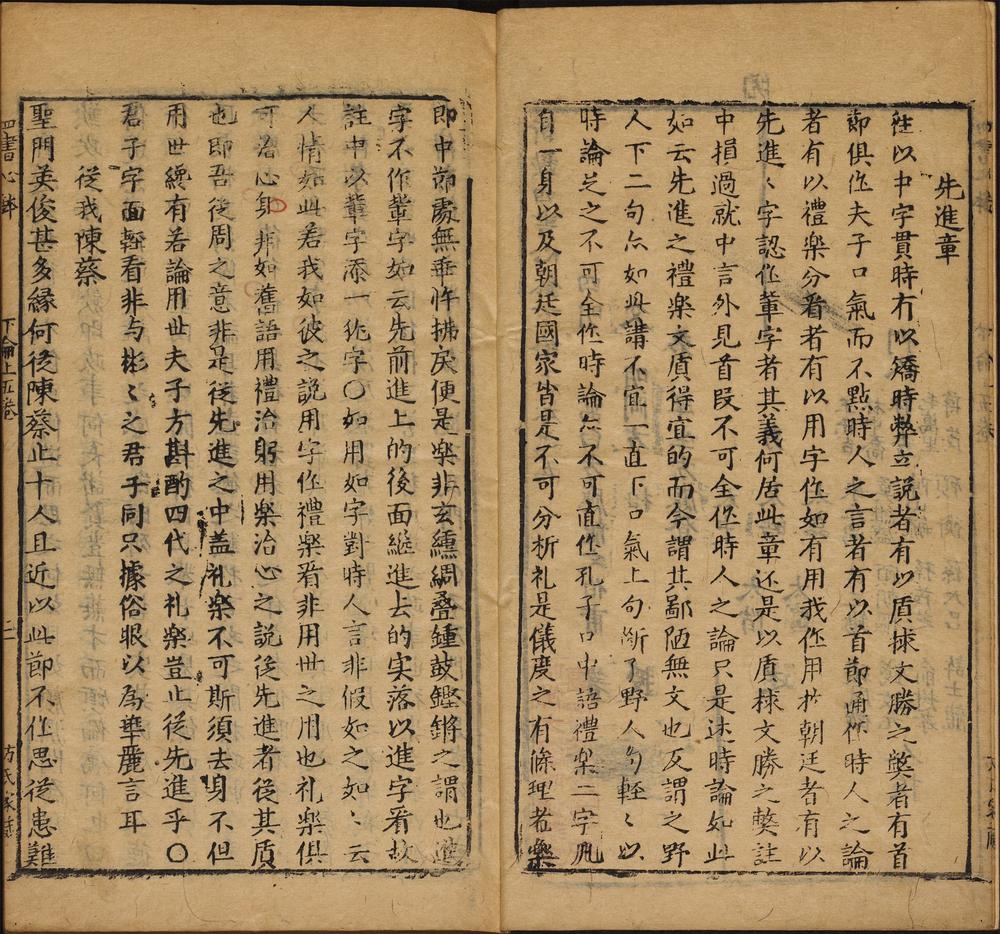 先進章
往以中字貫時冇以矯時弊立說者有以質捄文勝之獘者有首
節俱作夫子口氣而不點時人之言者有以首節通作時人之論
者有以禮樂分看者有以用字作如有用我作用扵朝廷者有以
先進〻字認作軰字者其義何居此章还是以質捄文勝之獘註
中損過就中言外見首叚不可全作時人之論只是述時論如此
如云先進之禮樂文質得宜的而今謂其鄙陋無文也反謂之野
人下二句亦如此講不宜一直下口氣上句斷了野人句輕〻以
時論㞢之不可全作時論亦不可直作孔子口中語禮樂二字凢
自一身以及朝廷國家皆是不可分析礼是儀度之有條理者樂
即中節處無乖忤拂戾便是樂非玄纁綢疊鍾鼓鏗鏘之謂也進
字不作軰字如云先前進上的後面継進去的実落以進字看故
註中以軰字添一猶字〇如用如字對時人言非假如之如〻云
人情如此若我如彼之說用字作禮樂看非用世之用也礼樂俱
可治心身非如舊語用禮治躬用樂治心之說從先進者從其質
也即吾從周之意非是從先進之中盖礼樂不可斯須去身不但
用世纔有若論用世夫子方斟酌四代之礼樂豈止從先進乎〇
君子字面輕看非与彬〻之君子同只據俗眼以為華麗言耳
從我陳蔡
聖門英俊甚多緣何從陳蔡止十人且近以此節不作思從患難
四書心鉢
下論上五卷
二
方氏家藏